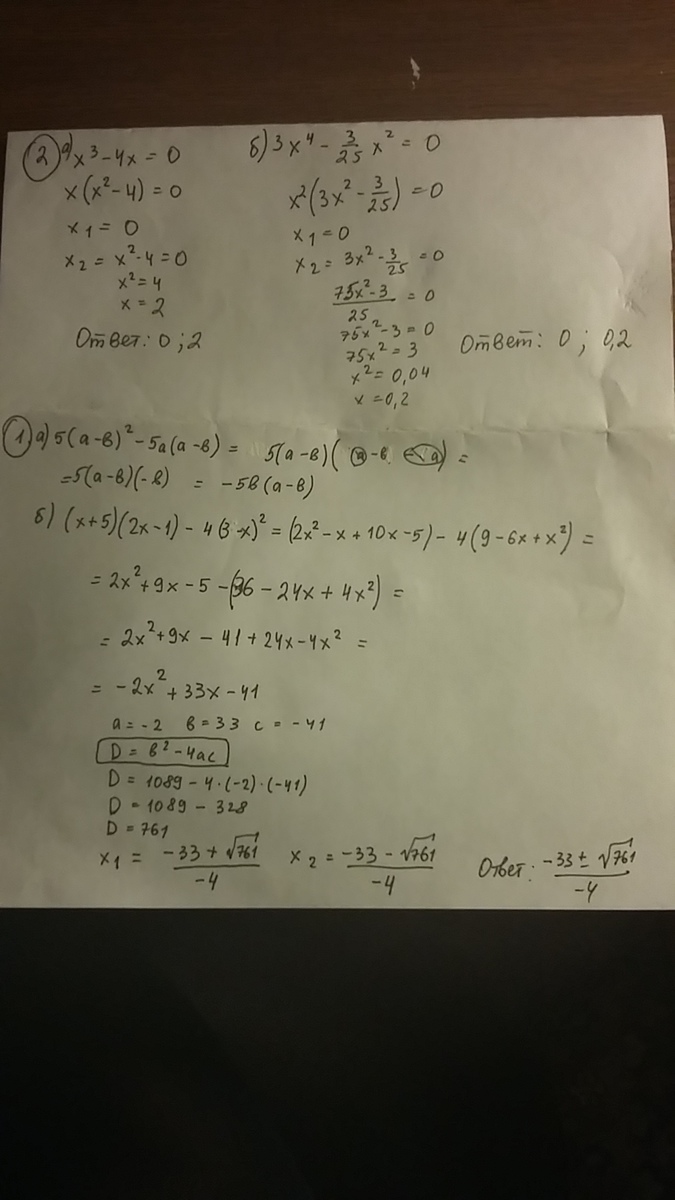 2 а) x³ - 4x = 0
x(x² - 4) = 0
x₁ = 0
x₂ = x² - 4 = 0
x² = 4
x = 2
Ответ: 0 ; 2
б) 3x⁴ - 3/25 x² = 0
x²(3x² - 3/25) = 0
x₁ = 0
x₂ = 3x² - 3/25 = 0
75x² - 3 / 25 = 0
75x² - 3 = 0
75x² = 3
x² = 0,04
x = 0,2
Ответ: 0 ; 0,2
1 а) 5(а-в)² - 5а(а-в) = 5(а-в)(а-в-а) =
= 5(а-в)(-в) = -5в(а-в)
б) (x+5)(2x-1) - 4(3-x)² = (2x² - x + 10x - 5) - 4(9 - 6x + x²) =
= 2x² + 9x - 5 - (36 - 24x + 4x²) =
= 2x² + 9x - 41 + 24x - 4x² =
= -2x² + 33x - 41
а = -2 в = 33 с = -41
D = в² - 4ас
D = 1089 - 4·(-2)·(-41)
D = 1089 - 328
D = 761
x₁ = -33 + √761 / -4 x₂ = -33 - √761 / -4 Ответ: -33 ± √761 / -4